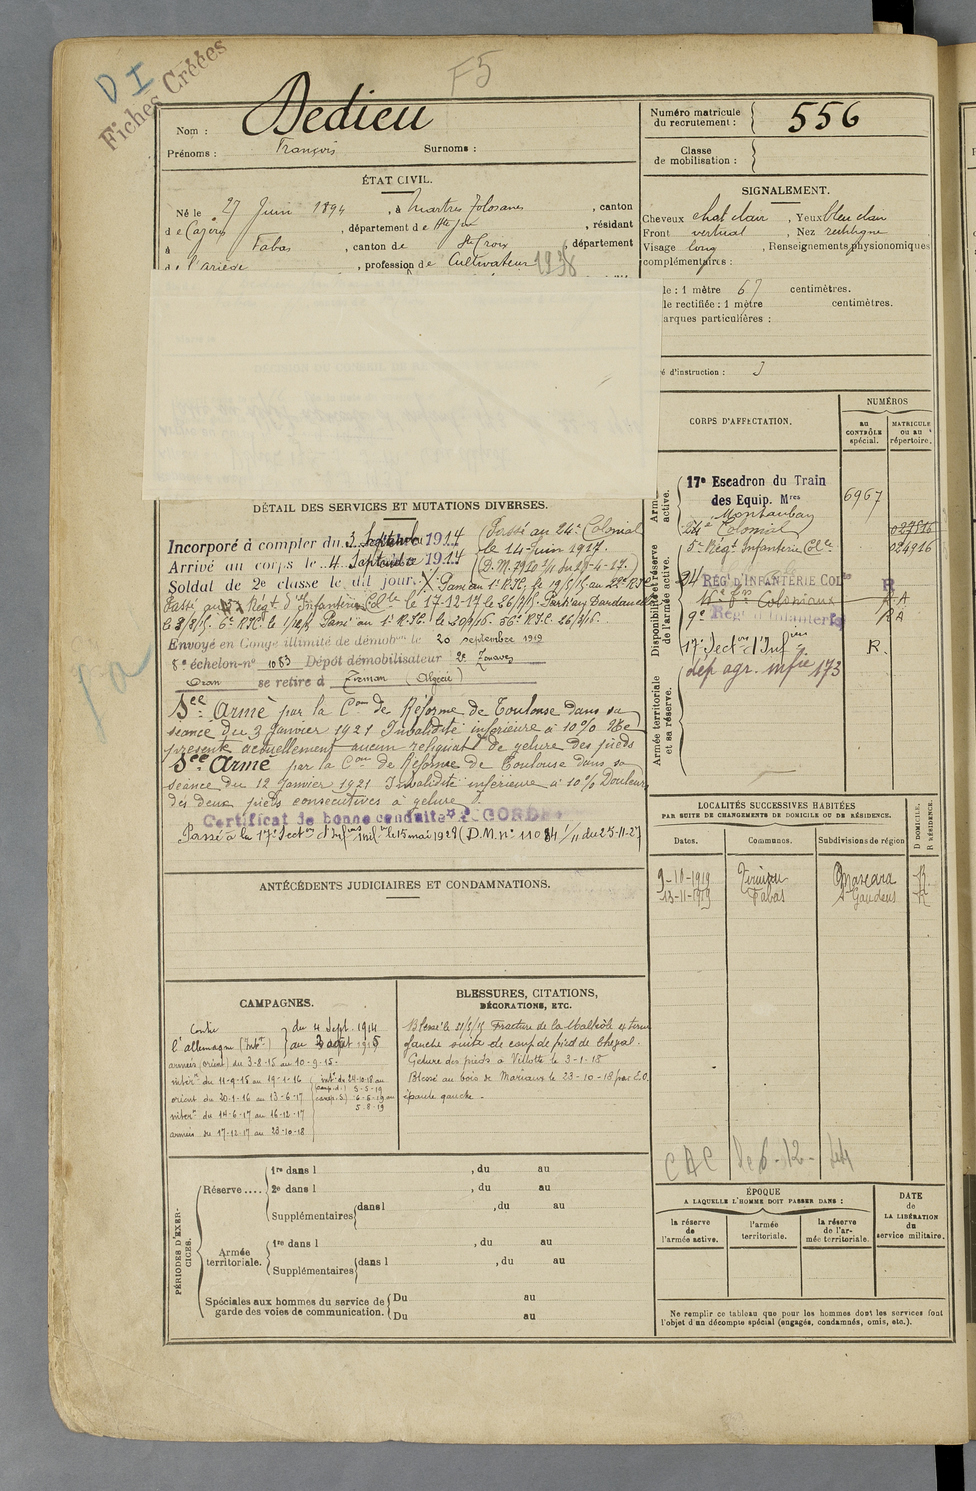 D I
Fiches Créées
F5
Nom : Dedieu
Prénoms : François Surnoms :
Numéro matricule du recrutement : 556
Classe de mobilisation :
ÉTAT CIVIL.
Né le 27 Juin 1894, à Martres Tolosanes, canton
de Cazères, département de Hte Gne, résidant
à Fabas, canton de Ste Croix, département
de l'Ariège, profession de Cultivateur 1938
SIGNALEMENT.
Cheveux chat clair, Yeux bleu clair
Front vertical, Nez rectiligne
Visage long, Renseignements physionomiques
complémentaires :
le : 1 mètre 67 centimètres.
le rectifiée : 1 mètre centimètres.
arques particulières :
é d'instruction : 3
CORPS D'AFFECTATION.
NUMÉROS
au CONTRÔLE spécial.
MATRICULE ou au répertoire.
Arm active.
17e Escadron du Train
des Equip. Mres 6967
Montauban
24e Colonial
5e Régt Infanterie Colle 024916
Disponibilité et réserve de l'armée active.
24 RÉG D'INFANTERIE COLle R
Coloniaux RA
9e Régt d'Infanterie RA
17e Secton d'Infie R.
dép agr. mfie 173
Armée territoriale et sa réserve.
DÉTAIL DES SERVICES ET MUTATIONS DIVERSES.
Incorporé à compter du 3 Septembre 1914 (Passé au 24e Colonial
Arrivé au corps le 4 Septembre 1914 le 14 Juin 1917.
Soldat de 2e classe le dit jour.
Passé au Régt d'Infanterie Colle le 17-12-17
Envoyé en Congé illimité de démobon le 20 septembre 1919
8e échelon-no 1083 Dépôt démobilisateur 2e Zouaves
Oran se retire à Tizman (Algérie)
See Armé par la Con de Réforme de Toulouse dans sa
séance du 3 Janvier 1921 Invalidité inférieure à 10% Ne
présente actuellement aucun reliquat de gelure des pieds
See Armé par la Con de Réforme de Toulouse dans sa
séance du 12 Janvier 1921 Invalidité inférieure à 10% Douleurs
des deux pieds consécutives à gelure
Certificat de bonne conduite
Passé à la 17e Secton d'Infie le 15 mai 1928 (D.M. no 11084 1/11 du 25-11-27
ANTÉCÉDENTS JUDICIAIRES ET CONDAMNATIONS.
LOCALITÉS SUCCESSIVES HABITÉES
PAR SUITE DE CHANGEMENTS DE DOMICILE OU DE RÉSIDENCE.
Dates. Communes. Subdivisions de région D DOMICILE, R RÉSIDENCE.
9-10-1919 Mascara R.
13-11-1919 Fabas St Gaudens R
CAC 6-12-44
CAMPAGNES.
Contre du 4 Sept. 1914
l'allemagne (Intr) au 2 août 1915
armées (orient) du 3-8-15 au 10-9-15.
intérr du 11-9-15 au 19-1-16
orient du 20-1-16 au 13-6-17
intérr du 14-6-17 au 16-12-17
armées du 17-12-17 au 23-10-18
intr du 24-10-18 au
5-5-19
6-5-19 au
5-8-19
BLESSURES, CITATIONS, DÉCORATIONS, ETC.
Blessé le Fracture de la Malléole externe
gauche suite de coup de pied de cheval.
Gelure des pieds à Villotte le 3-1-18
Blessé au bois de Moriaux le 23-10-18 par E.O.
épaule gauche.
PÉRIODES D'EXERCICES.
Réserve .... 1re dans l , du au
2e dans l , du au
Supplémentaires dans l , du au
Armée territoriale. 1re dans l , du au
Supplémentaires dans l , du au
Spéciales aux hommes du service de garde des voies de communication. Du au
Du au
ÉPOQUE
A LAQUELLE L'HOMME DOIT PASSER DANS :
la réserve de l'armée active.
l'armée territoriale.
la réserve de l'armée territoriale.
DATE DE LA LIBÉRATION du service militaire.
Ne remplir ce tableau que pour les hommes dont les services font
l'objet d'un décompte spécial (engagés, condamnés, omis, etc.).